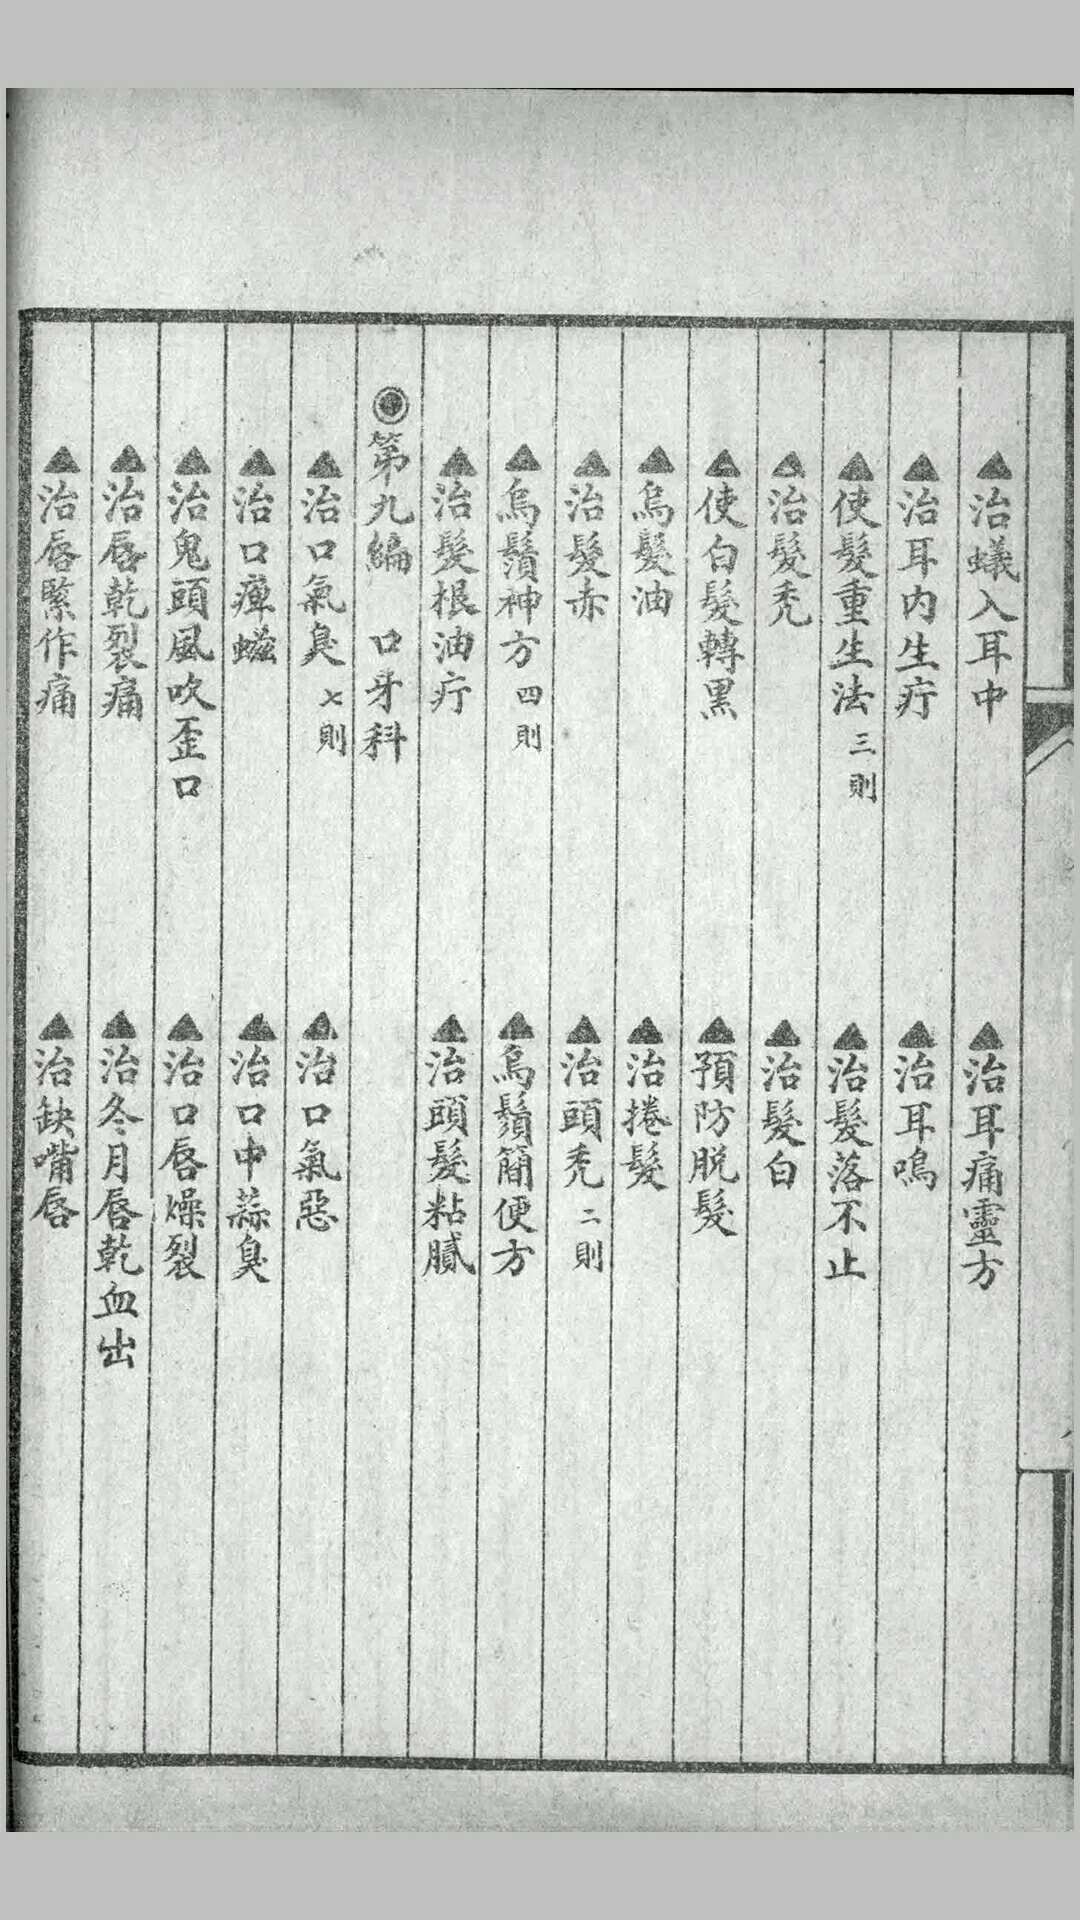 ▲治蟻入耳中 ▲治耳痛靈方
▲治耳内生疔 ▲治耳鳴
▲使髮重生法 三則 ▲治髮落不止
▲治髮禿 ▲治髮白
▲使白髮轉黑 ▲預防脱髮
▲烏髮油 ▲治捲髮
▲治髮赤 ▲治頭禿 二則
▲烏鬚神方 四則 ▲烏鬚簡便方
▲治髮根油疔 ▲治頭髮粘膩
◉第九編 口牙科
▲治口氣臭 七則 ▲治口氣惡
▲治口痺 ▲治口中蒜臭
▲治鬼頭風吹歪口 ▲治口唇燥裂
▲治唇乾裂痛 ▲治冬月唇乾血出
▲治唇緊作痛 ▲治缺嘴唇